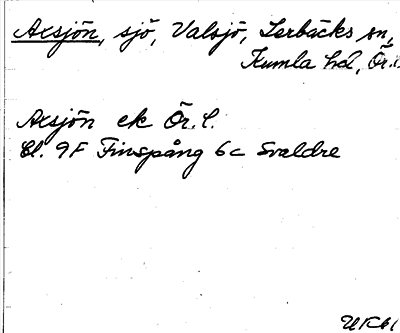 Axsjön, sjö, Valsjö, Lerbäcks sn,
Kumla hd, Ör.l.
Axsjön ek Ör. l.
Bl. 9F Finspång 6c Svaldre